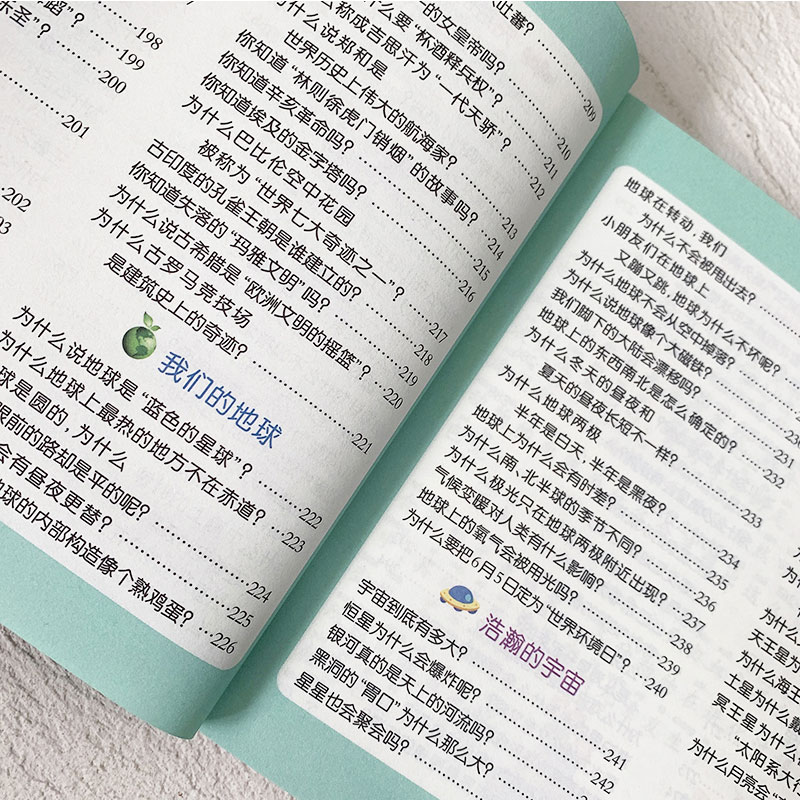 蹈”?
东圣”?
198
199
200
201
202
203
吐蕃?……209
的女皇帝吗?……210
么要“杯酒释兵权”?……211
么称成吉思汗为“一代天骄”?……212
为什么说郑和是
世界历史上伟大的航海家?……213
你知道“林则徐虎门销烟”的故事吗?……214
你知道辛亥革命吗?……215
你知道埃及的金字塔吗?……216
为什么巴比伦空中花园
被称为“世界七大奇迹之一”?……217
古印度的孔雀王朝是谁建立的?……218
你知道失落的“玛雅文明”吗?……219
为什么说古希腊是“欧洲文明的摇篮”?…220
为什么古罗马竞技场
是建筑史上的奇迹?……221
我们的地球
为什么说地球是“蓝色的星球”?……222
为什么地球上最热的地方不在赤道?……223
球是圆的,为什么
眼前的路却是平的呢?……224
会有昼夜更替?……225
地球的内部构造像个熟鸡蛋?…226
地球在转动,我们
为什么不会被甩出去?
小朋友们在地球上
又蹦又跳,地球为什么不坏呢?
为什么地球不会从空中掉落?
为什么说地球像个大磁铁?
我们脚下的大陆会漂移吗?
地球上的东西南北是怎么确定的?……232
为什么冬天的昼夜和
夏天的昼夜长短不一样?……233
为什么地球两极
半年是白天,半年是黑夜?……234
地球上为什么会有时差?……235
为什么南、北半球的季节不同?……236
为什么极光只在地球两极附近出现?……237
气候变暖对人类有什么影响?……238
地球上的氧气会被用光吗?……239
为什么要把6月5日定为“世界环境日”?…240
浩瀚的宇宙
宇宙到底有多大?……241
恒星为什么会爆炸呢?……242
银河真的是天上的河流吗?
黑洞的“胃口”为什么那么大?
星星也会聚会吗?
为什么
天王星为
为什么海王
土星为什么戴
冥王星为什么
“太阳系大行
为什么月亮会“